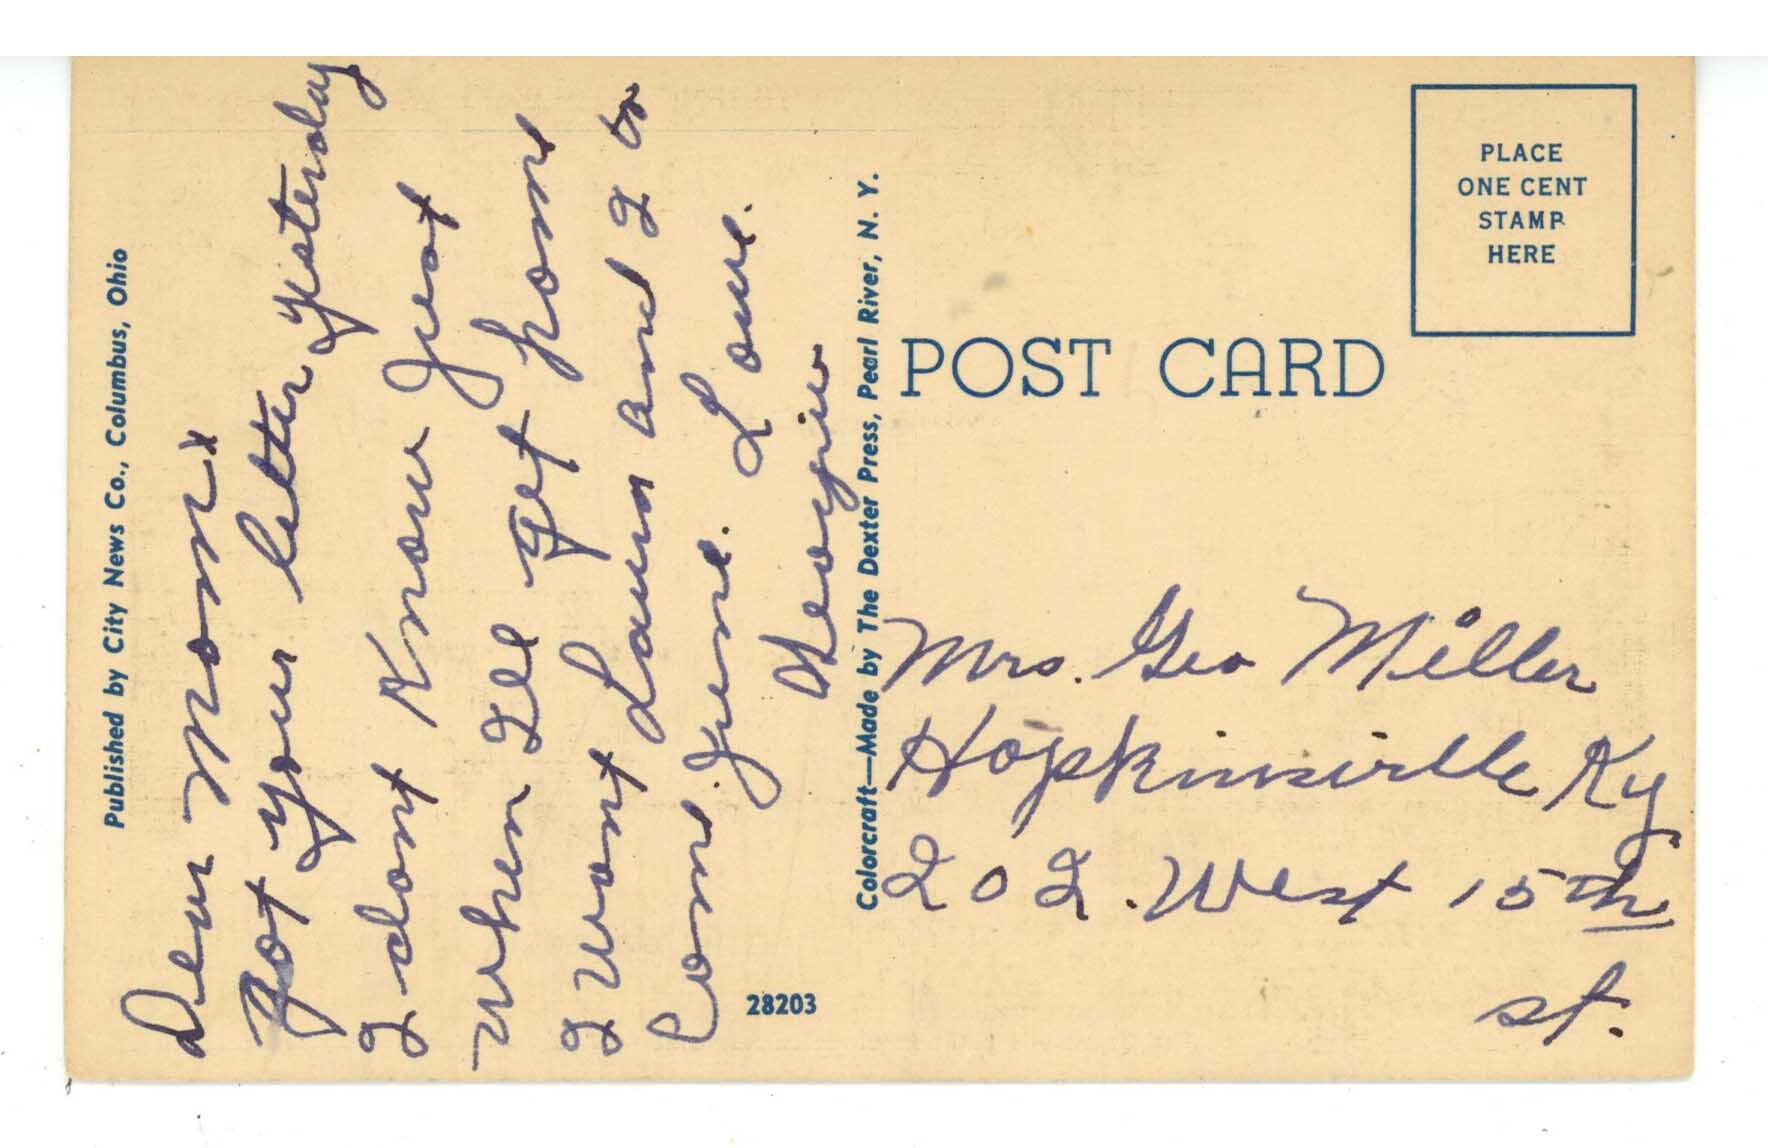 Published by City News Co., Columbus, Ohio
Dear Mom:
Got your letter yesterday
I dont Know Just
When Ill get home
I Want Laura and I to
Come June. Love.
Georgia
28203
Colorcraft—Made by The Dexter Press, Pearl River, N. Y.
POST CARD
PLACE
ONE CENT
STAMP
HERE
Mrs. Geo Miller
Hopkinsville Ky
202. West 15th
st.